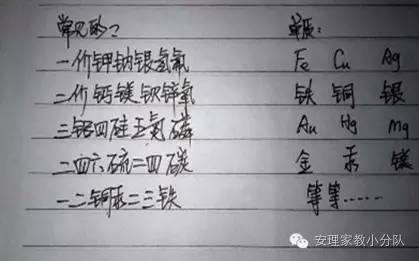 常见的:
一价钾钠银氢
二价钙镁钡锌氧
三铝四硅五氮磷
二四六硫二四碳
一二铜汞二三铁
单质:
Fe Cu Ag
铁 铜 银
Au Hg Mg
金 汞 镁
等等……
安理家教小分队